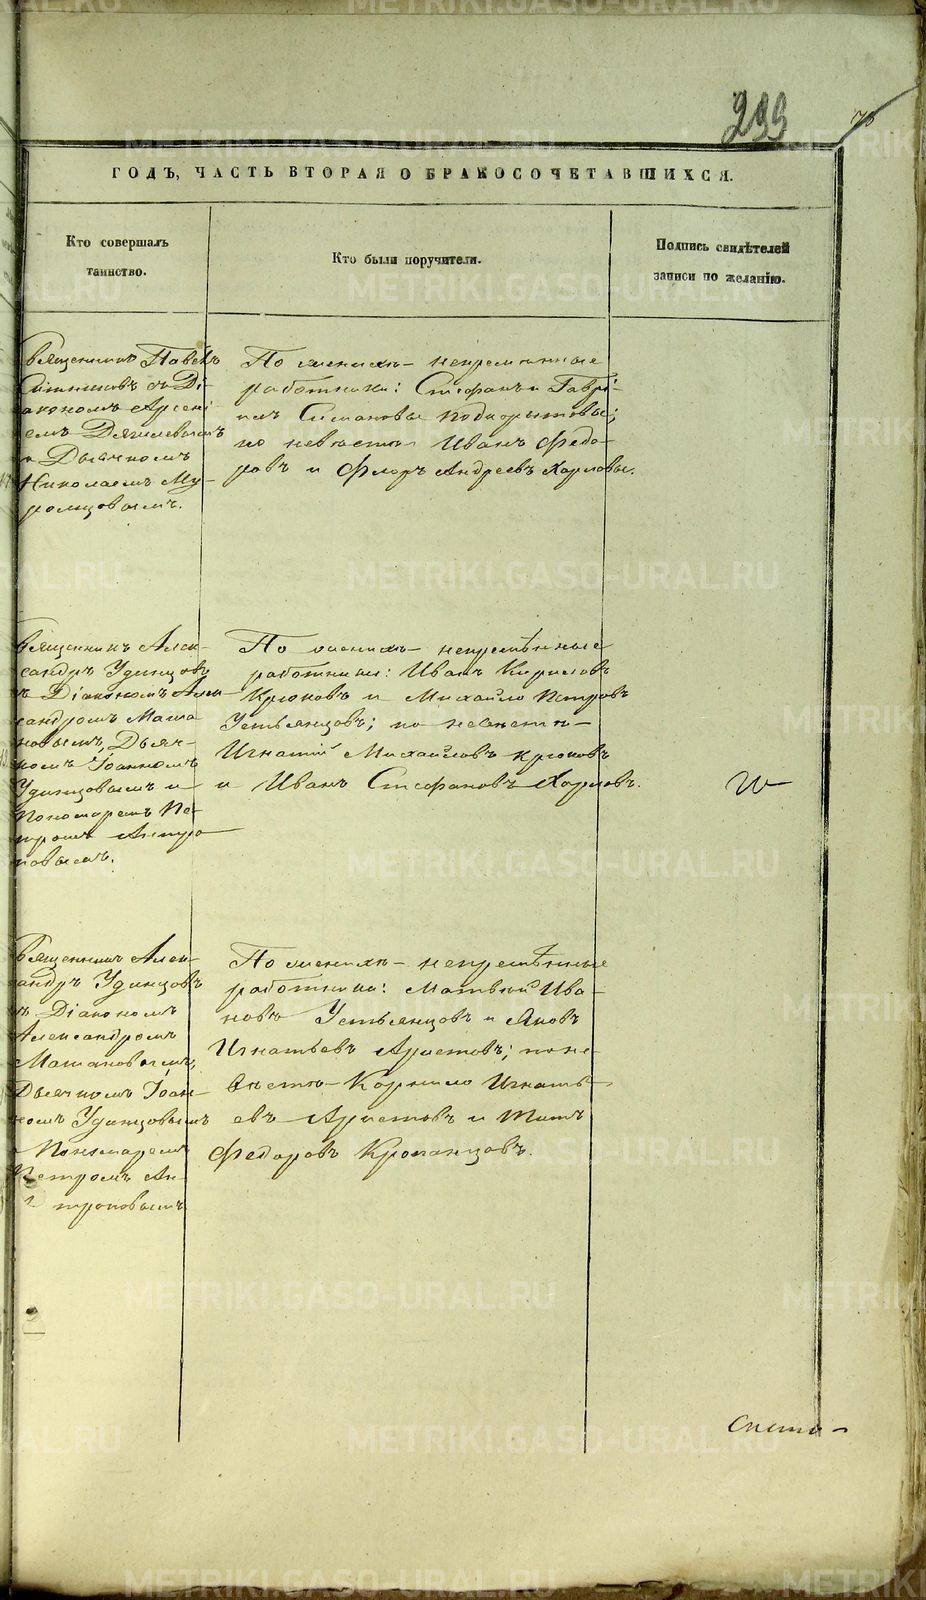 299
75
ГОДЪ, ЧАСТЬ ВТОРАЯ О БРАКОСОЧЕТАВШИХСЯ.
Кто совершалъ
таинство.
Кто были поручители.
Подпись свидѣтелей
записи по желанію.
Священникъ Павелъ
съ Ді-
акономъ Арсені-
емъ
и Дьячкомъ
Николаемъ Му-
ромцовымъ.
По женихѣ – непременные
работники: Стефанъ и Гаврі-
илъ Симановы
по невѣстѣ Иванъ Федо-
ровъ и Флоръ Андреевъ Харловы.
Священникъ Алек-
сандръ Удинцовъ
съ Діакономъ Алек-
сандромъ Мама-
новымъ, Дьяч-
комъ Іоанномъ
Удинцовымъ и
Пономаремъ Пе-
тромъ Антро-
повымъ.
По женихѣ – непремѣнные
работники: Иванъ Кириловъ
Крюковъ и Михайло Петровъ
Устьянцовъ; по невѣстѣ –
Игнатій Михайловъ Крюковъ
и Иванъ Стефановъ Харловъ.
Священникъ Алек-
сандръ Удинцовъ
съ Діакономъ
Александромъ
Мамановымъ,
Дьячкомъ Іоан-
номъ Удинцовымъ
и Пономаремъ
Петромъ Ан-
троповымъ
По женихѣ – непремѣнные
работники: Матвей Ива-
новъ Устьянцовъ и Яковъ
Игнатьевъ Аристовъ; по не-
вѣстѣ – Корнило Игнать-
евъ Аристовъ и Титъ
Федоровъ
METRIKI.GASO-URAL.RU